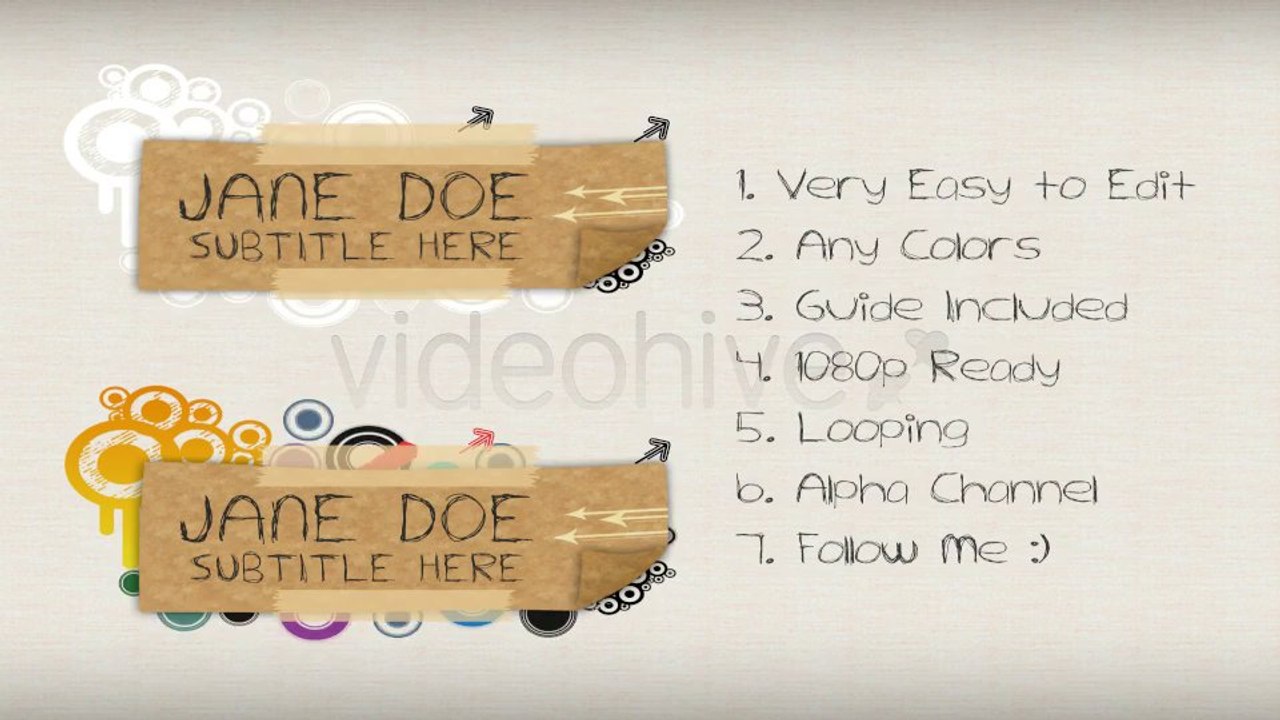 JANE DOE
SUBTITLE HERE
1. Very Easy to Edit
2. Any Colors
3. Guide Included
4. 1080p Ready
5. Looping
6. Alpha Channel
7. Follow Me :)
videohive
JANE DOE
SUBTITLE HERE